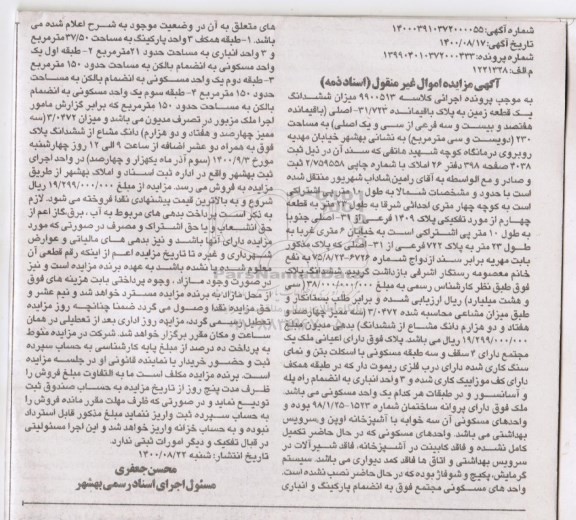 شماره آگهی: ۱۴۰۰۰۳۹۱۰۳۷۲۰۰۰۰۵۵
تاریخ آگهی: ۱۴۰۰/۰۸/۱۷
شماره پرونده: ۱۳۹۹۰۴۰۱۰۳۷۲۰۰۰۴۳۳
م الف: ۱۲۲۱۳۴۸
آگهی مزایده اموال غیر منقول (اسناد ذمه)
به موجب پرونده اجرائی کلاسه ۹۹۰۰۵۱۳ میزان ششدانگ
یک قطعه زمین به پلاک باقیمانده ۳۱/۷۲۳- اصلی (باقیمانده
هفتصد و بیست و سه فرعی از سی و یک اصلی) به مساحت
۲۳۰ (دویست و سی مترمربع) به نشانی بهشهر خیابان مهدیه
روبروی درمانگاه کوچه شهید مانقی که سند آن در ذیل ثبت
۴۰۳۸ صفحه ۳۹۸ دفتر ۲۶ املاک با شماره چاپی ۲/۷۵۹۵۵۸ ثبت
و صادر و مع الواسطه به آقای رامین شاداب شهریور منتقل شده
است با حدود و مشخصات شمالا به طول ۱۰ متر پی اشتراکی
است به کوچه چهار متری احداثی شرقا به طول ۲۳ متر به قطعه
چهارم از مورد تفکیکی پلاک ۱۴۰۹ فرعی از ۳۱- اصلی جنوبا
به طول ۱۰ متر پی اشتراکی است به خیابان ۶ متری غربا به
طول ۲۳ متر به پلاک ۷۲۲ فرعی از ۳۱- اصلی که پلاک مذکور
بابت مهریه برابر سند ازدواج شماره ۶۷۲۶-۷۵/۸/۲۳ به نفع
خانم معصومه رستگار اشرفی بازداشت گردید. ششدانگ پلاک
فوق طبق نظر کارشناس رسمی به مبلغ ۳۸/۰۰۰/۰۰۰/۰۰۰ (سی
و هشت میلیارد) ریال ارزیابی شده و برابر طلب بستانکار و
طبق میزان مشاعی محاسبه شده ۳/۰۴۷۲ (سه ممیز چهارصد و
هفتاد و دو هزارم دانگ مشاع از ششدانگ) بدهی مدیون مبلغ
۱۹/۲۹۹/۰۰۰/۰۰۰ ریال می باشد. پلاک فوق دارای اعیانی ملک یک
مجتمع دارای ۴ سقف و سه طبقه مسکونی با اسکلت بتن و نمای
سنگ کاری شده دارای درب فلزی ریموت دار که در طبقه همکف
دارای کف موزاییک کاری شده و ۳ واحد انباری به انضمام راه پله
و آسانسور و در طبقات هر کدام یک واحد مسکونی می باشد.
ملک فوق دارای پروانه ساختمان شماره ۱۵۲۳-۹۸/۱/۲۵ بوده و
واحدهای مسکونی آن سه خوابه با آشپزخانه اوپن و سرویس
بهداشتی می باشد. واحدهای مسکونی که در حال حاضر تکمیل
کامل نشده و فاقد کابینت در آشپزخانه، فاقد شیر آلات در
سرویس بهداشتی و اتاق ها فاقد کمد دیواری می باشد. سیستم
گرمایش، پکیج و شوفاژ بوده که در حال حاضر نصب نشده است.
واحد های مسکونی مجتمع فوق به انضمام پارکینگ و انباری
های متعلق به آن در وضعیت موجود به شرح اعلام شده می
باشد. ۱-طبقه همکف ۳ واحد پارکینگ به مساحت ۳۷/۵۰ مترمربع
و ۳ واحد انباری به مساحت حدود ۲۱مترمربع ۲- طبقه اول یک
واحد مسکونی به انضمام بالکن به مساحت حدود ۱۵۰ مترمربع
۳- طبقه دوم یک واحد مسکونی به انضمام بالکن به مساحت
حدود ۱۵۰ مترمربع ۴- طبقه سوم یک واحد مسکونی به انضمام
بالکن به مساحت حدود ۱۵۰ مترمربع که برابر گزارش مامور
اجرا ملک مزبور در تصرف مدیون می باشد و میزان ۳/۰۴۷۲(سه
ممیز چهارصد و هفتاد و دو هزارم) دانگ مشاع از ششدانگ پلاک
فوق به همراه دو عشر اضافه از ساعت ۹ الی ۱۲ روز چهارشنبه
مورخ ۱۴۰۰/۹/۳ (سوم آذر ماه یکهزار و چهارصد) در واحد اجرای
ثبت بهشهر واقع در اداره ثبت اسناد و املاک بهشهر از طریق
مزایده به فروش می رسد. مزایده از مبلغ ۱۹/۲۹۹/۰۰۰/۰۰۰ ریال
شروع و به بالاترین قیمت پیشنهادی نقدا فروخته می شود. لازم
به ذکر است پرداخت بدهی های مربوط به آب ، برق،گاز اعم از
حق انشعاب و یا حق اشتراک و مصرف در صورتی که مورد
مزایده دارای آنها باشد و نیز بدهی های مالیاتی و عوارض
شهرداری و غیره تا تاریخ مزایده اعم از اینکه رقم قطعی آن
معلوم شده یا نشده باشد به عهده برنده مزایده است و نیز
در صورت وجود مازاد ، وجوه پرداختی بابت هزینه های فوق
از محل مازاد به برنده مزایده مسترد خواهد شد و نیم عشر و
حق مزایده نقدا وصول می گردد ضمنا چنانچه روز مزایده
تعطیل رسمی گردد، مزایده روز اداری بعد از تعطیلی در همان
ساعت و مکان مقرر برگزار خواهد شد. شرکت در مزایده منوط
به پرداخت ده درصد از مبلغ پایه کارشناسی به حساب سپرده
ثبت و حضور خریدار یا نماینده قانونی او در جلسه مزایده
است. برنده مزایده مکلف است ما به التفاوت مبلغ فروش را
ظرف مدت پنج روز از تاریخ مزایده به حساب صندوق ثبت
تودیع نماید و در صورتی که ظرف مهلت مقرر مانده فروش را
به حساب سپرده ثبت واریز ننماید مبلغ مذکور قابل استرداد
نبوده و به حساب خزانه واریز خواهد شد و این اجرا مسئولیتی
در قبال تفکیک و دیگر امورات ثبتی ندارد.
تاریخ انتشار: شنبه ۱۴۰۰/۰۸/۲۲
محسن جعفری
مسئول اجرای اسناد رسمی بهشهر